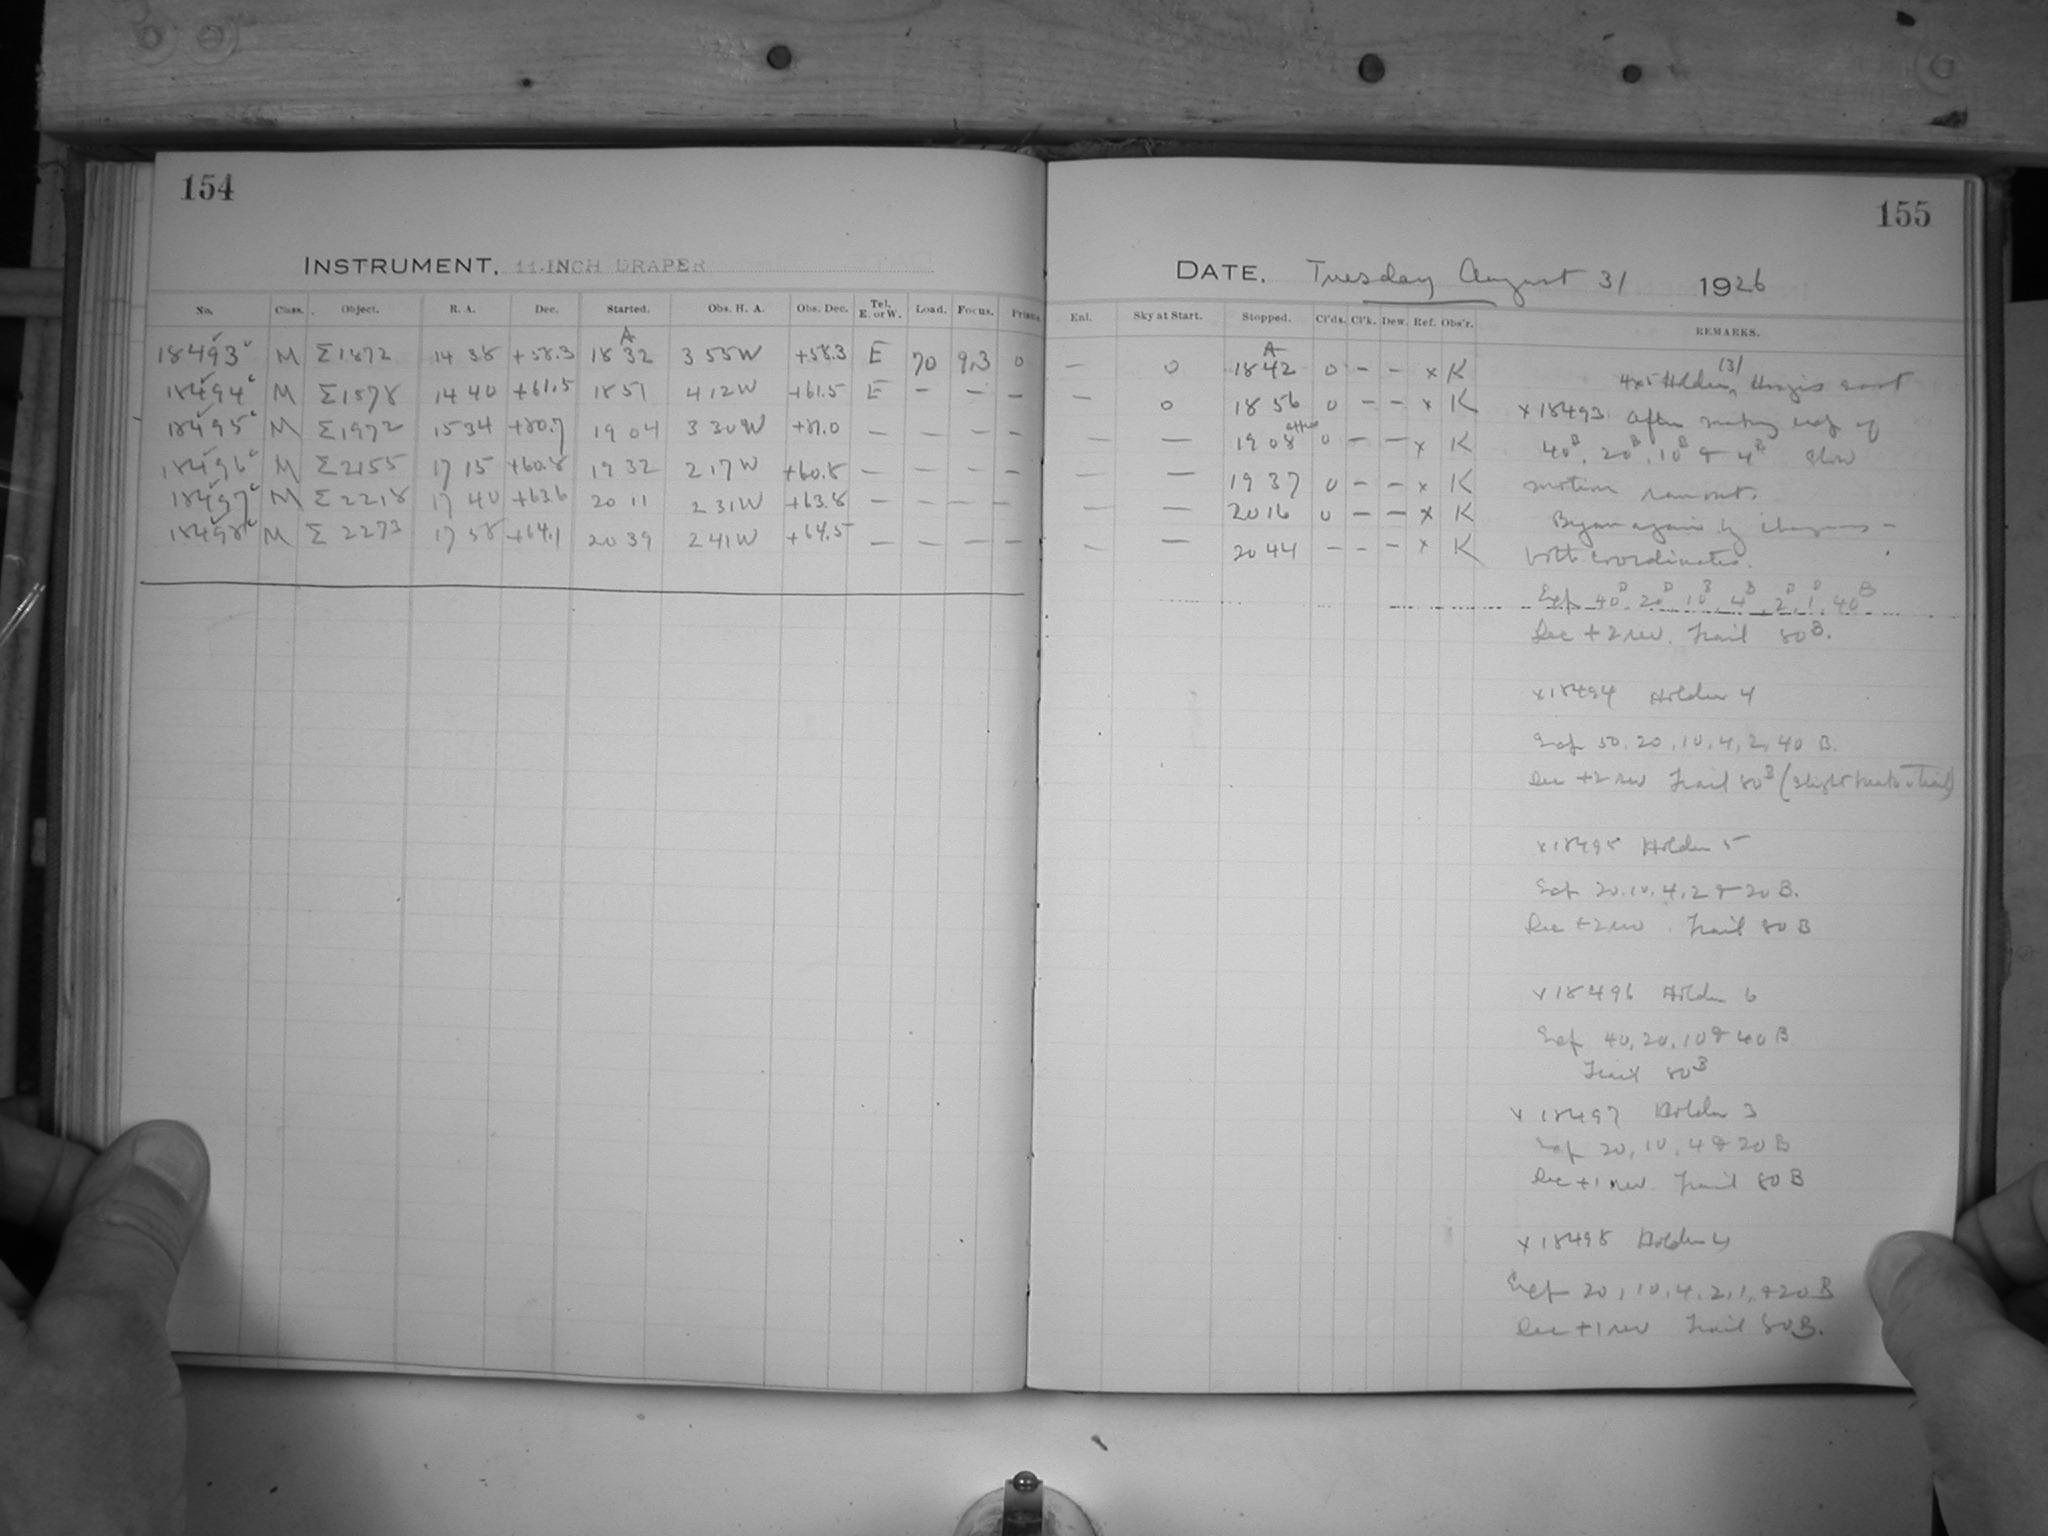 154
INSTRUMENT. 11-INCH DRAPER
No. Class. Object. R. A. Dec. Started. Obs. H. A. Obs. Dec. Tel. E. or W. Load. Focus. Prism.
A
18493 M Σ1872 14 38 +58.3 18 32 3 55W +58.3 E 70 9.3 0
18494 M Σ1878 14 40 +61.5 18 51 4 12W +61.5 E – – –
18495 M Σ1972 15 34 +80.7 19 04 3 30W +81.0 – – – –
18496 M Σ2155 17 15 +60.8 19 32 2 17W +60.8 – – – –
18497 M Σ2218 17 40 +63.6 20 11 2 31W +63.8 – – – –
18498 M Σ2273 17 58 +64.1 20 39 2 41W +64.5 – – – –
155
DATE. Tuesday August 31 1926
Enl. Sky at Start. Stopped. Cl'ds. Cl'k. Dew. Ref. Obs'r. REMARKS.
A
– 0 18 42 0 – – x K
– 0 18 56 0 – – x K
– – 19 08 0 – – x K
– – 19 37 0 – – x K
– – 20 16 0 – – x K
– – 20 44 – – – x K
(3)
4x5 Holder, Hinges east
x 18493 After making exp of
40B, 20B, 10B & 4B slow
motion ran out.
Began again by changing
both coordinates.
Exp 40B, 20B, 10B, 4B, 2B, 1B, 40B
Dec +2 rev. Trail 80B.
x 18494 Holder 4
Exp 50, 20, 10, 4, 2, 40 B.
Dec +2 rev Trail 80B
x 18495 Holder 5
Exp 20, 10, 4, 2 & 20 B.
Dec +2 rev. Trail 80 B
x 18496 Holder 6
Exp 40, 20, 10 & 40 B
Trail 80B
x 18497 Holder 3
Exp 20, 10, 4 & 20 B
Dec +1 rev. Trail 80 B
x 18498 Holder 4
Exp 20, 10, 4, 2, 1, & 20 B
Dec +1 rev Trail 80B.